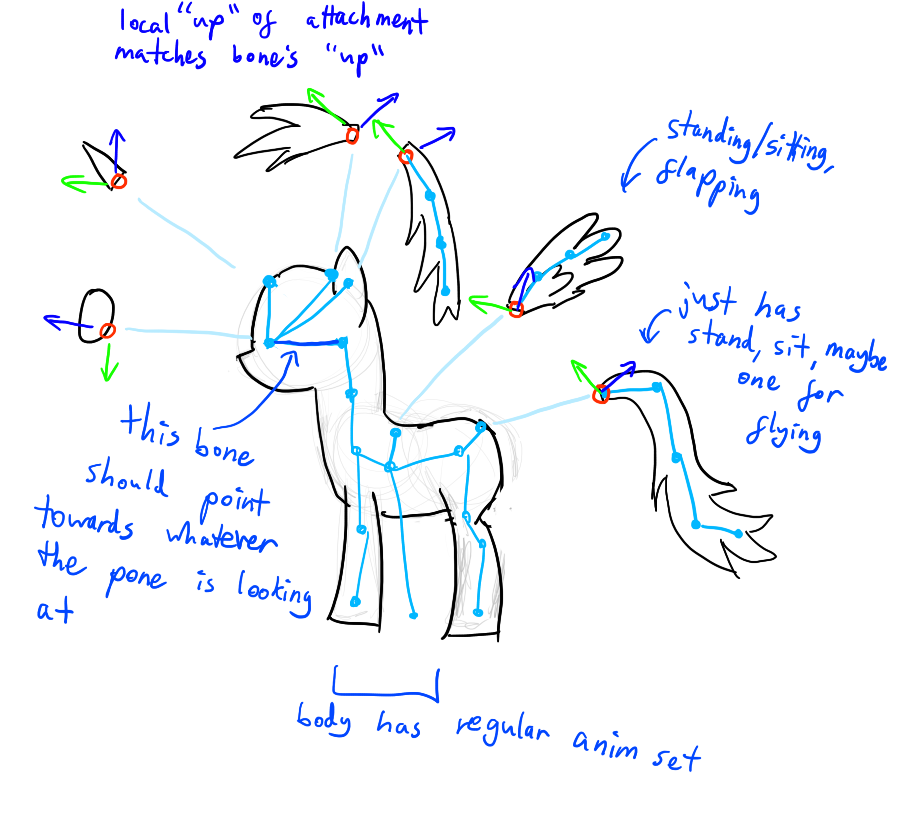 local "up" of attachment
matches bone's "up"
standing/sitting,
flapping
just has
stand, sit, maybe
one for
flying
this bone
should point
towards whatever
the pone is looking
at
body has regular anim set